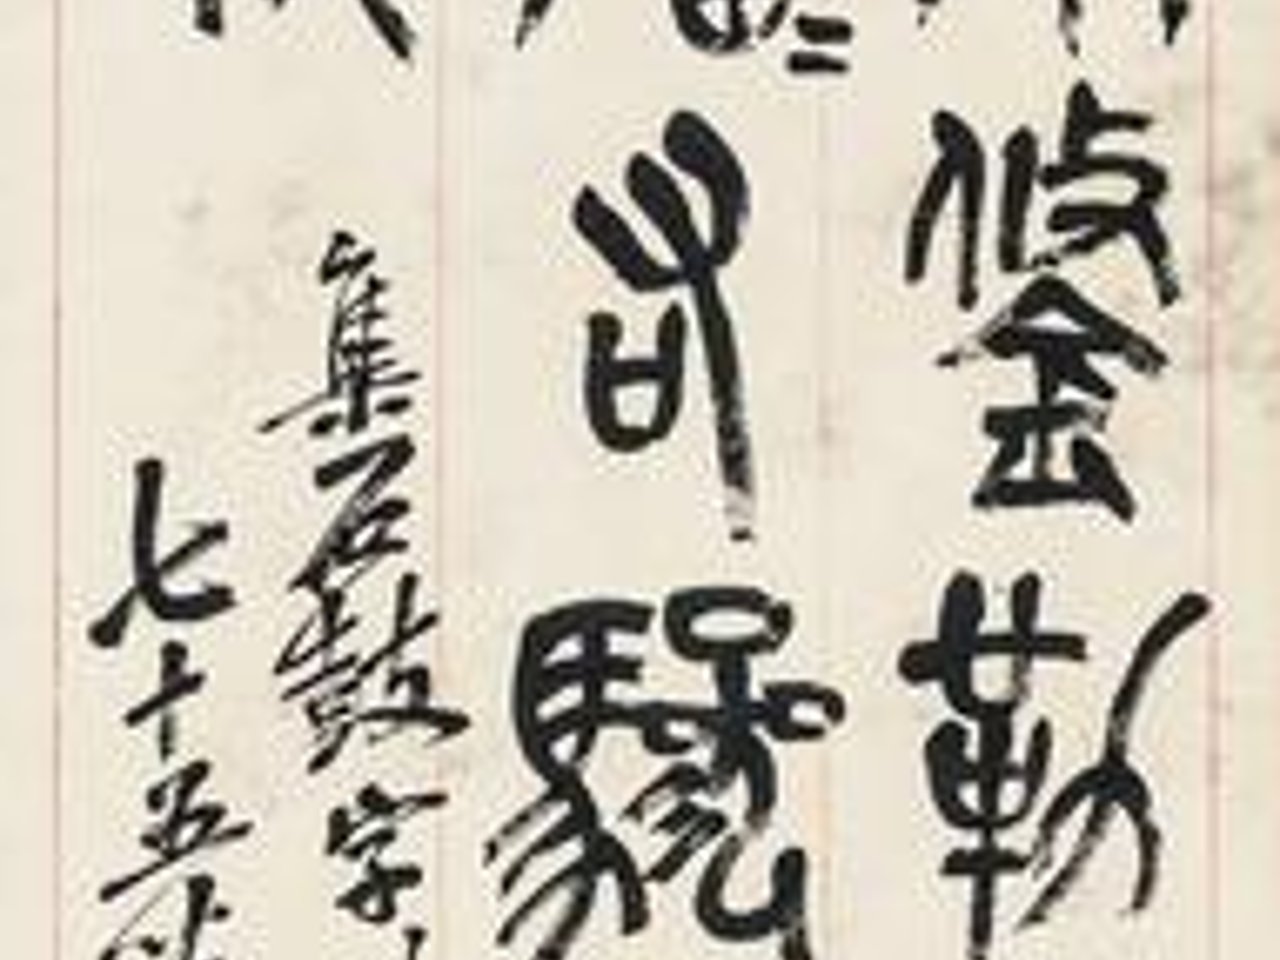 鋚勒
右驂
集石鼓字
七十五